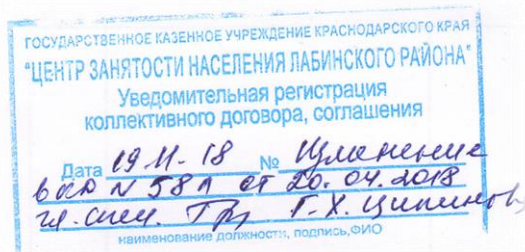 ГОСУДАРСТВЕННОЕ КАЗЕННОЕ УЧРЕЖДЕНИЕ КРАСНОДАРСКОГО КРАЯ
"ЦЕНТР ЗАНЯТОСТИ НАСЕЛЕНИЯ ЛАБИНСКОГО РАЙОНА"
Уведомительная регистрация
коллективного договора, соглашения
Дата 19.11.18 № Изменение
в КД N 58Л от 20.04.2018
гл. спец. Г.Х. Ципинов
наименование должности, подпись, ФИО